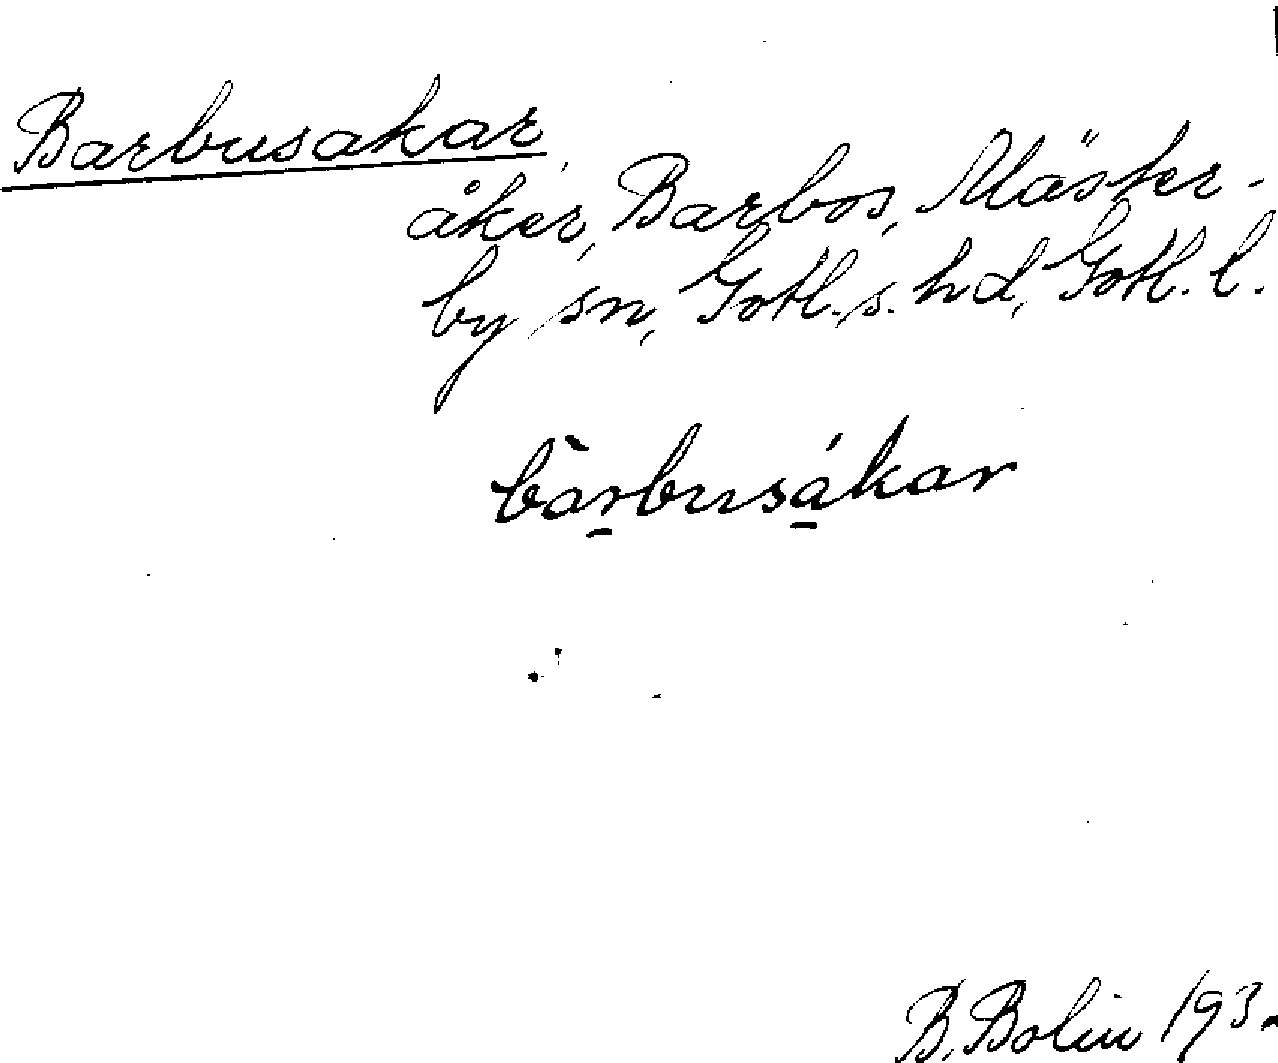 Barbusakar
åker, Barbos, Mäster-
by sn, Gotl. s. hd, Gotl. l.
bàrbusákar
B. Bolin 193